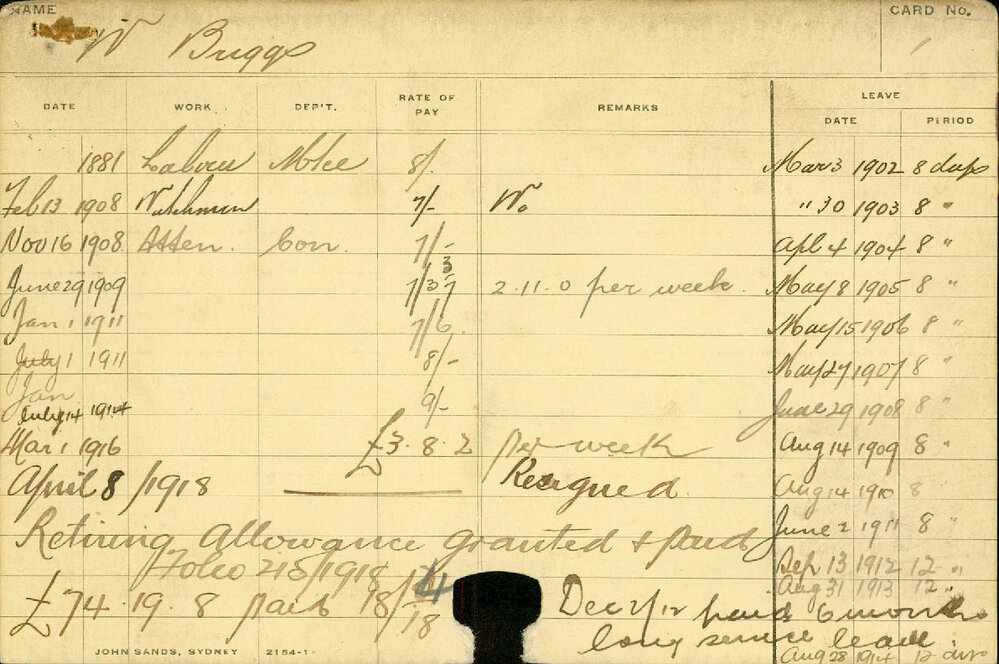 NAME
CARD No.
W Buggs
DATE WORK DEP'T. RATE OF PAY REMARKS LEAVE
DATE PERIOD
1881 8/. Mar 3 1902 8 days
Feb 13 1908 Watchman 7/- Wo " 30 1903 8 "
Nov 16 1908 Atten. Con. 7/- Apl 4 1904 8 "
June 29 1909 2.11.0 per week. May 8 1905 8 "
Jan 1 1911 7/6 May 15 1906 8 "
July 1 1911 8/- May 27 1907 8 "
Jan
July 14 1914 9/- June 29 1908 8 "
Mar 1 1916 £3.8.2 per week Aug 14 1909 8 "
April 8/1918 Resigned. Aug 14 1910 8
Retiring Allowance granted & paid June 2 1911 8 "
Folio 215/1918 Sep 13 1912 12 "
Aug 31 1913 12 "
£74.19.8 paid 18/4/18 Dec 2/12 paid 6 months
long service leave
Aug 28 1914 12 days
JOHN SANDS, SYDNEY 2154-1